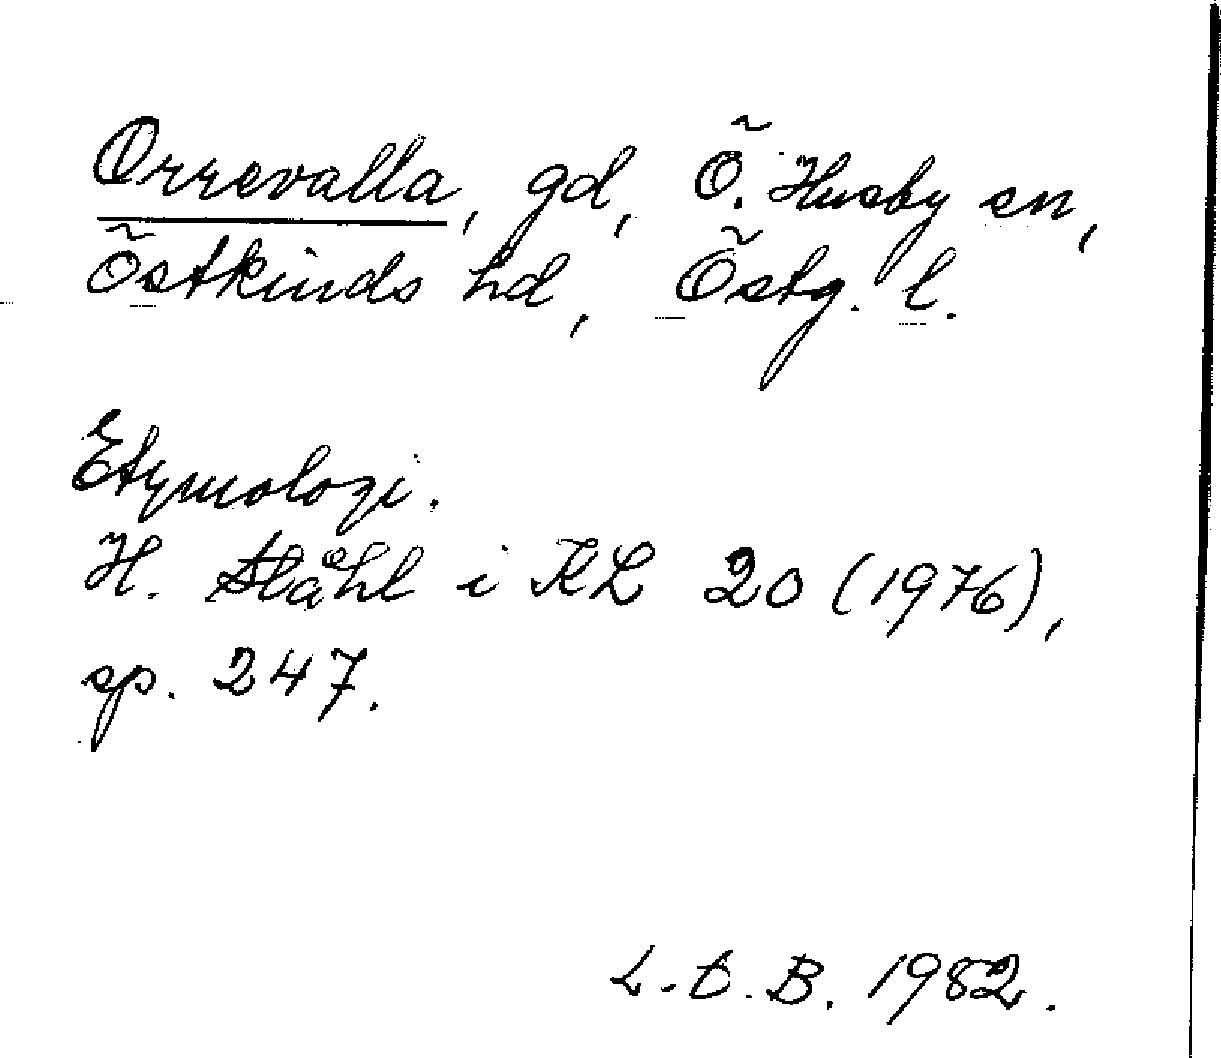 Orrevalla, gd, Ö. Husby sn,
Östkinds hd, Östg. l.
Etymologi.
H. Ståhl i KL 20 (1976),
sp. 247.
L.D.B. 1982.